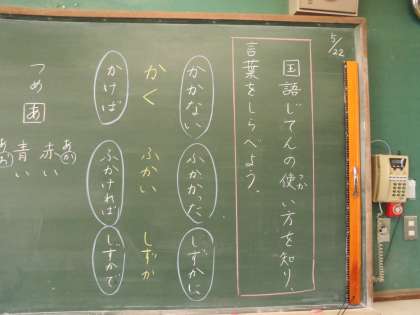 5/22
国語じてんの使い方を知り、
つか
言葉をしらべよう。
かかない ふかかった しずかに
かく ふかい しずか
かけば ふかければ しずかで
あか
つめ あ 赤い
あお
青い